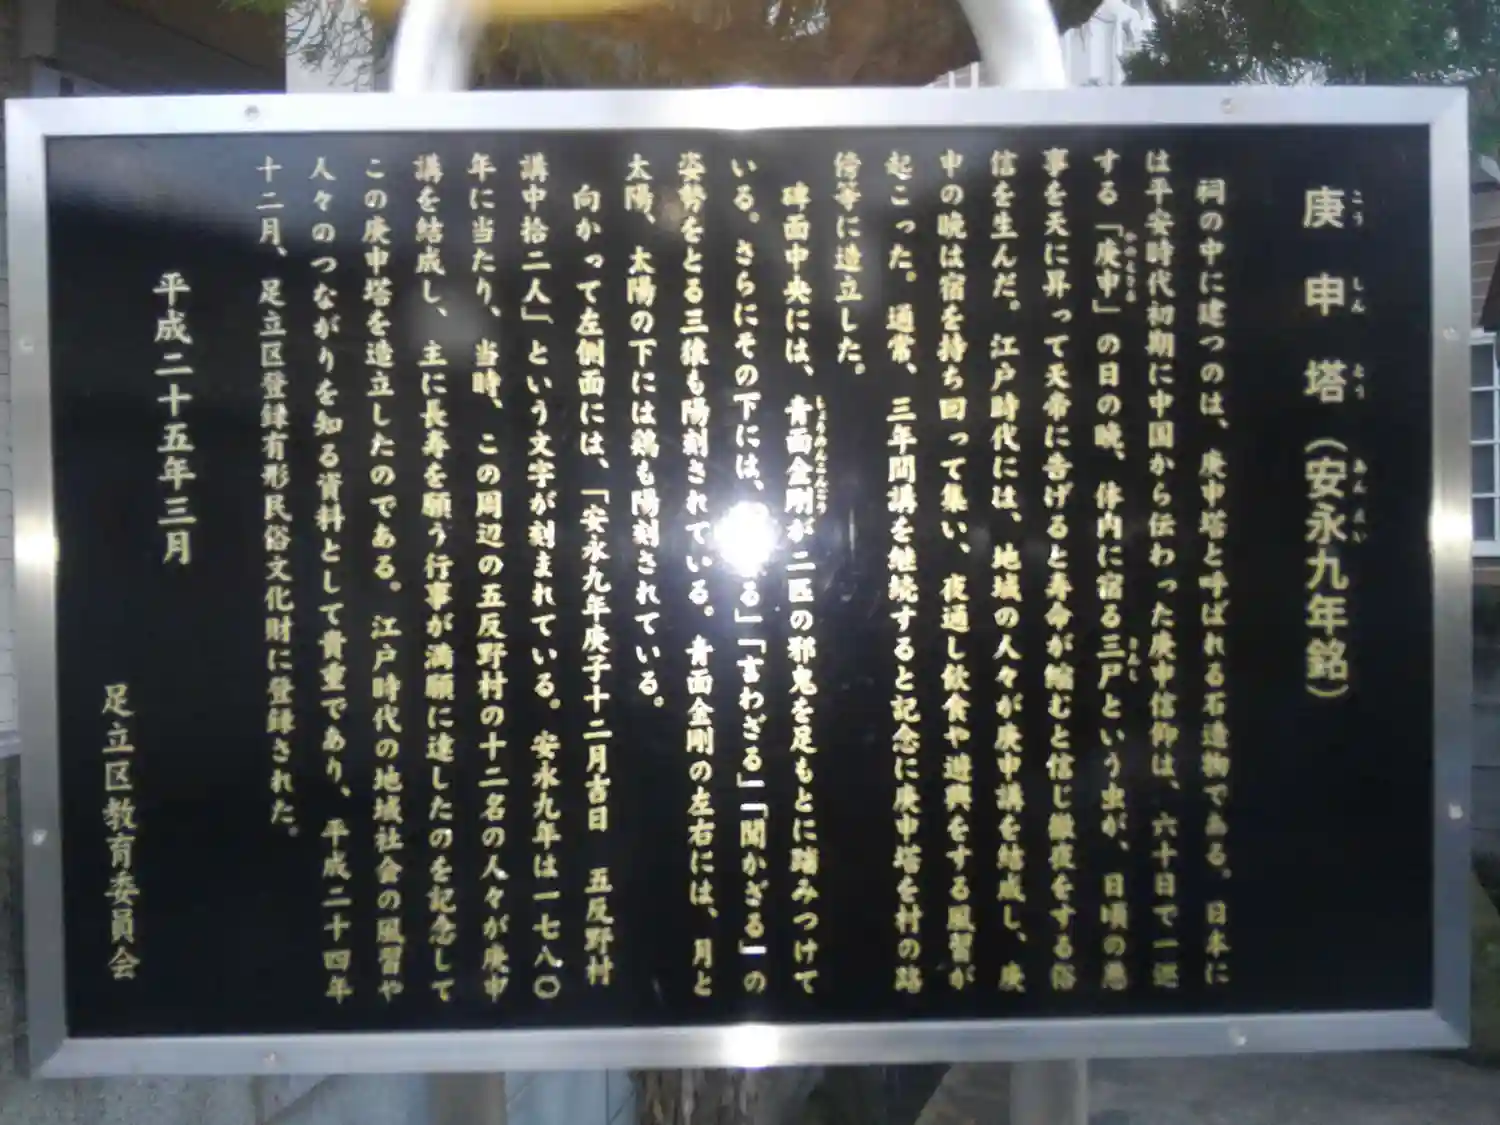 庚申塔(安永九年銘)
こうしんとう あんえい
祠の中に建つのは、庚申塔と呼ばれる石造物である。日本に
は平安時代初期に中国から伝わった庚申信仰は、六十日で一巡
する「庚申」の日の晩、体内に宿る三尸という虫が、日頃の悪
かのえさる さんし
事を天に昇って天帝に告げると寿命が縮むと信じ徹夜をする俗
信を生んだ。江戸時代には、地域の人々が庚申講を結成し、庚
申の晩は宿を持ち回って集い、夜通し飲食や遊興をする風習が
起こった。通常、三年間講を継続すると記念に庚申塔を村の路
傍等に造立した。
碑面中央には、青面金剛が二匹の邪鬼を足もとに踏みつけて
しょうめんこんごう
いる。さらにその下には、る」「言わざる」「聞かざる」の
姿勢をとる三猿も陽刻されている。青面金剛の左右には、月と
太陽、太陽の下には鶏も陽刻されている。
向かって左側面には、「安永九年庚子十二月吉日 五反野村
講中拾二人」という文字が刻まれている。安永九年は一七八〇
年に当たり、当時、この周辺の五反野村の十二名の人々が庚申
講を結成し、主に長寿を願う行事が満願に達したのを記念して
この庚申塔を造立したのである。江戸時代の地域社会の風習や
人々のつながりを知る資料として貴重であり、平成二十四年
十二月、足立区登録有形民俗文化財に登録された。
平成二十五年三月
足立区教育委員会